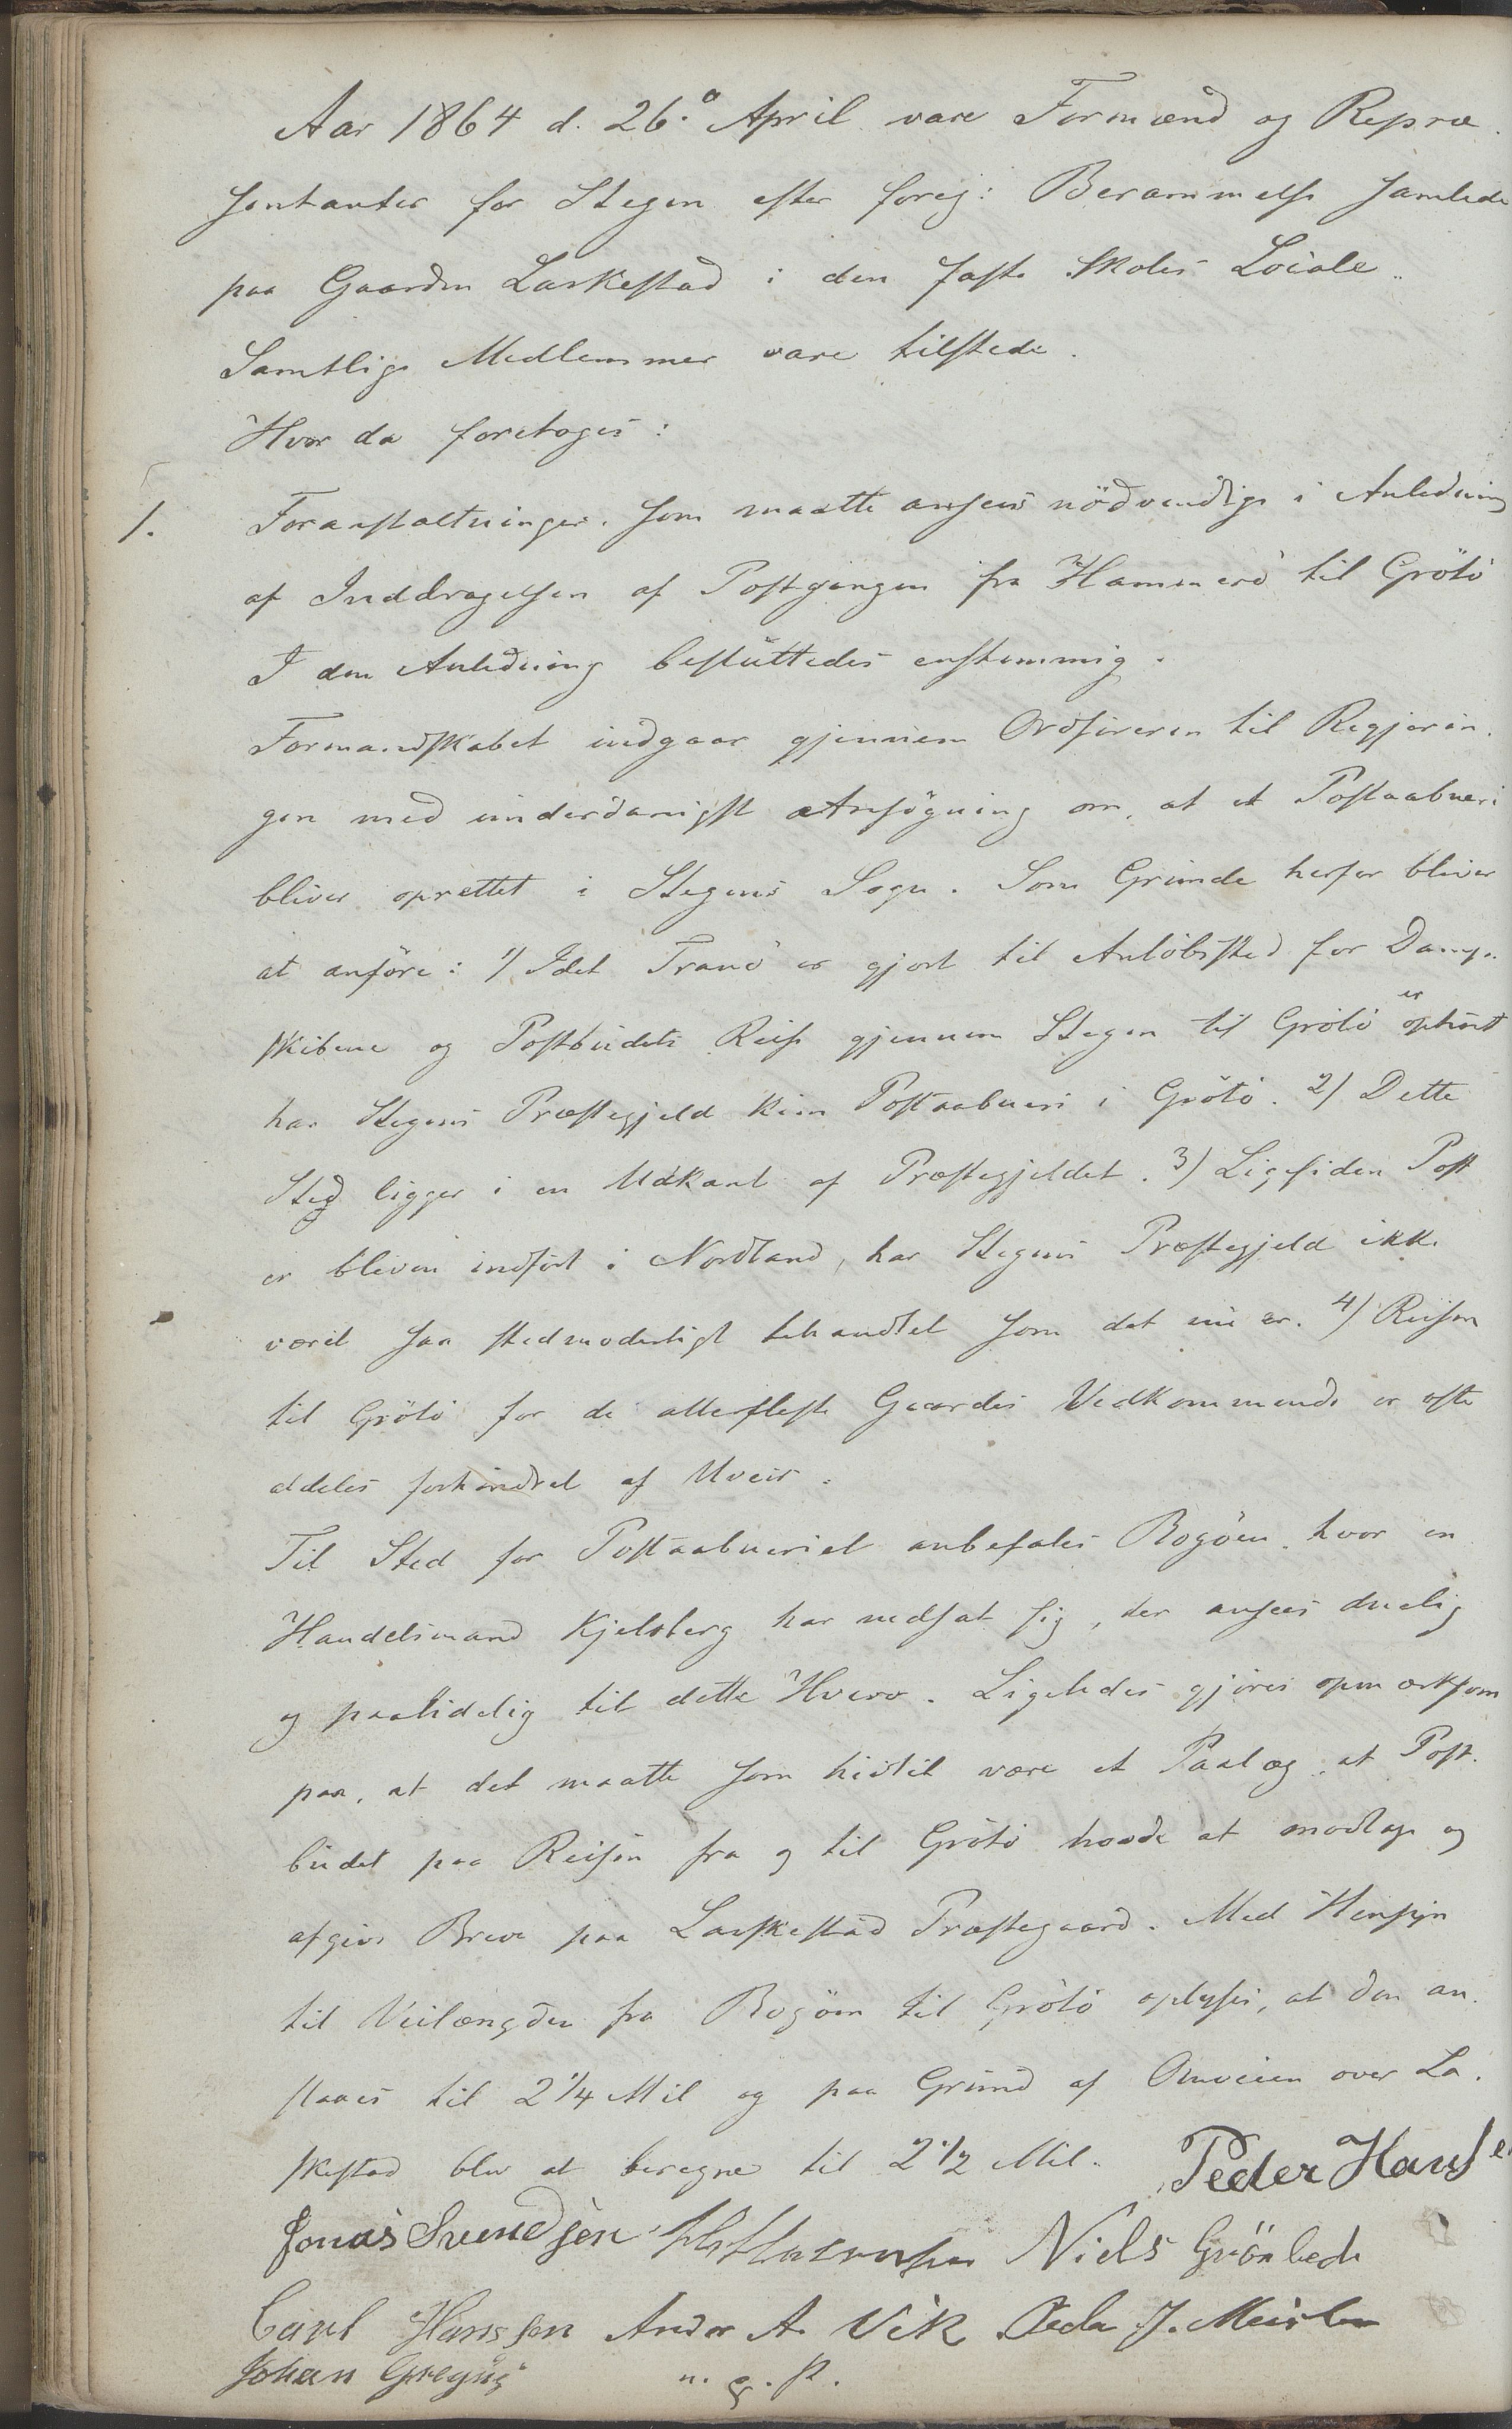 Aar 1864 d. 26.º April vare Formænd og Repræ.
sentanter for Stegen efter foreg: Berammelse samlede
paa Gaarden Laskestad i den faste Skoles Locale.
Samtlige Medlemmer vare tilstede.
Hvor da foretoges:
1. Foranstaltninger, som maatte ansees nödvendige i Anledning
af Inddragelsen af Postgangen fra Hammerö til Grötö
I den Anledning besluttedes enstemmig.
Formandskabet indgaar gjennem Ordföreren til Regjerin.
gen med underdanigst Ansögning om, at et Postaabneri
bliver oprettet i Stegens Sogn. Som Grunde herfor bliver
at anföre: 1) Idet Tranö er gjort til Anlöbssted for Damp.
skibene og Postbudets Reise gjennem Stegen til Grötö er ophört
har Stegens Præstegjeld kun Postaabneri i Grötö. 2) Dette
Sted ligger i en Udkant af Præstegjeldet. 3) Ligesiden Post
er bleven indfört i Nordland, har Stegens Præstegjeld ikke
været saa stedmoderligt behandlet som det nu er. 4) Reisen
til Grötö for de allerfleste Gaardes Vedkommende er ofte
aldeles forhindret af Uveir.
Til Sted for Postaabneriet anbefales Bogöen, hvor en
Handelsmand Kjelsberg har nedsat sig, der ansees duelig
og paalidelig til dette Hverv. Ligeledes gjöres opmærksom
paa, at det maatte som hidtil være et Paalæg, at Post.
budet paa Reisen fra og til Grötö havde at modtage og
afgive Breve paa Laskestad Præstegaard. Med Hensyn
til Veilængden fra Bogöen til Grötö oplyses, at den an.
slaaes til 2 1/4 Mil og paa Grund af Omveien over La.
skestad blev at beregne til 2 1/2 Mil. Peder Hanse
Jonas Svendsen Niels Grönbech
Carl Hanssen Ander A. Vik Peder J.
Johan Gregus n. g. P.